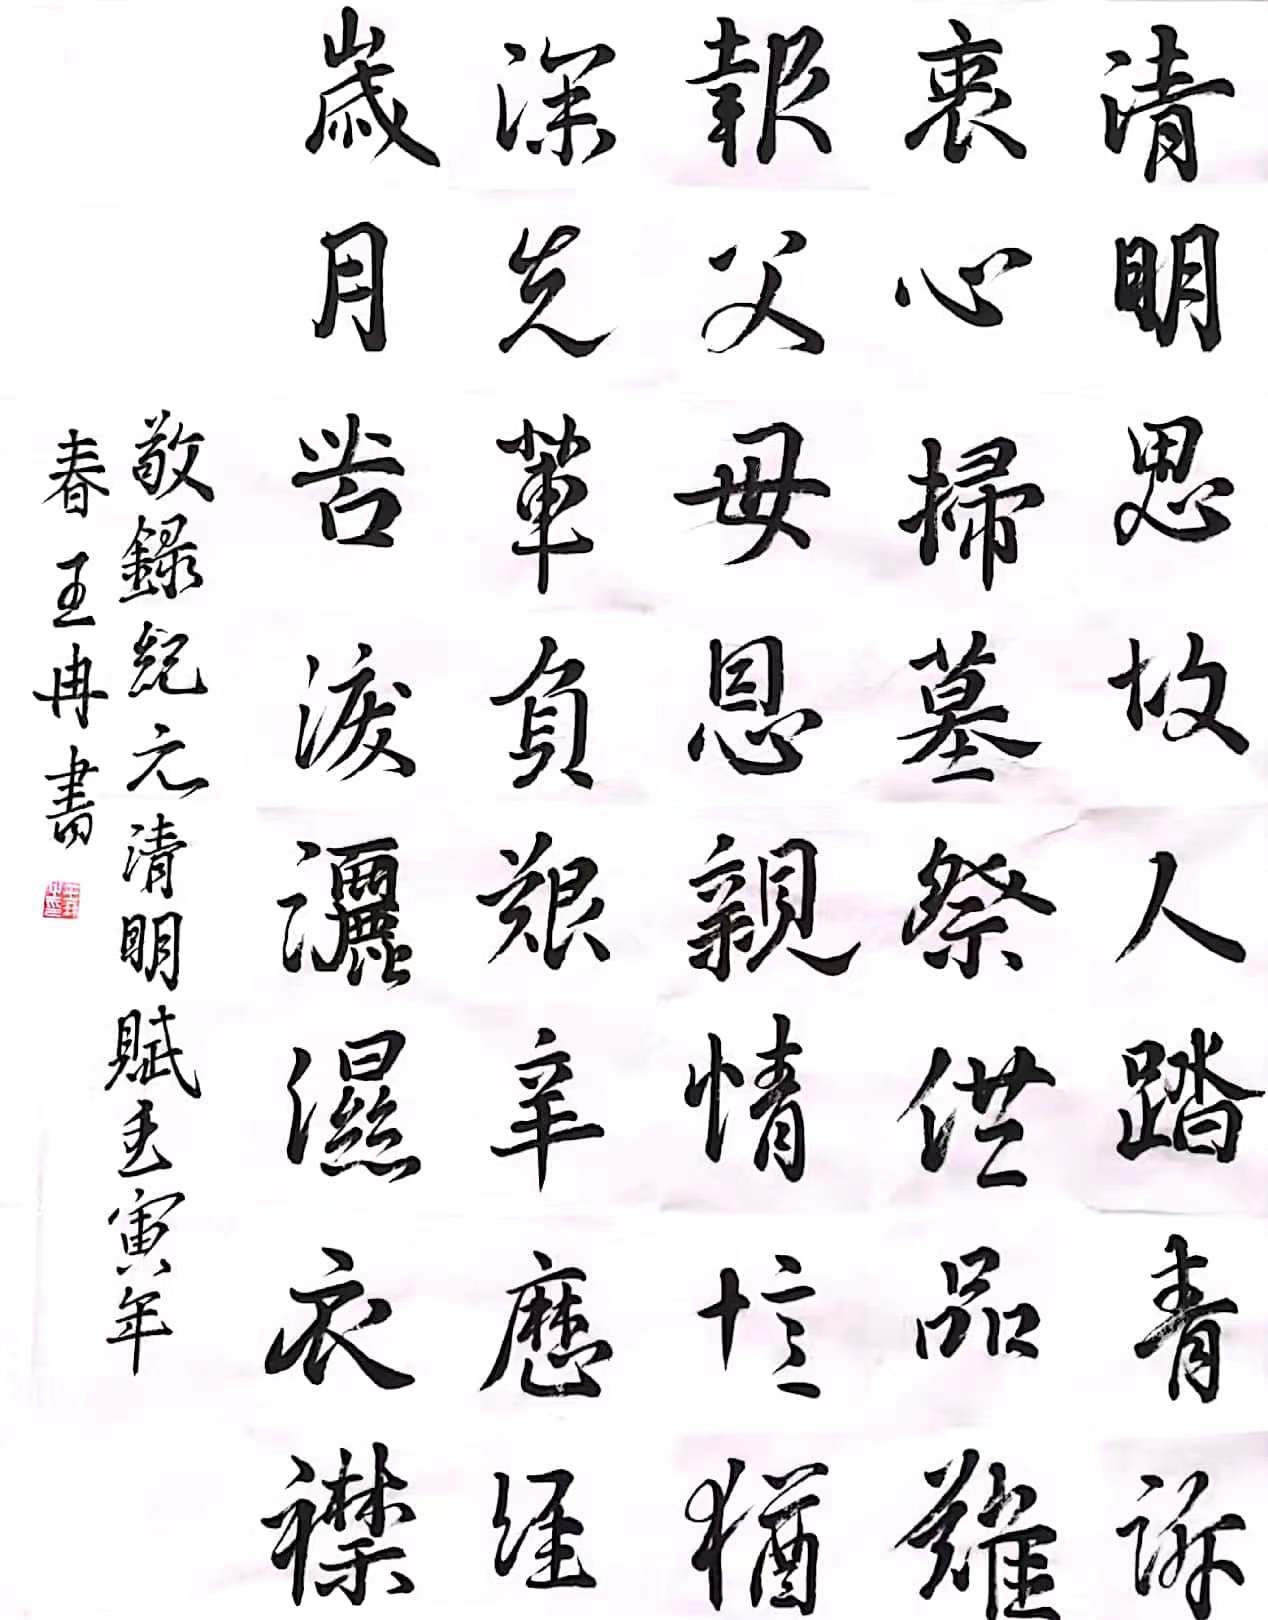 清明思故人踏青訴
衷心掃墓祭供品難
報父母恩親情憶猶
深先輩負艱辛歷經
歲月苦淚灑濕衣襟
敬錄紀元清明賦壬寅年
春王冉書